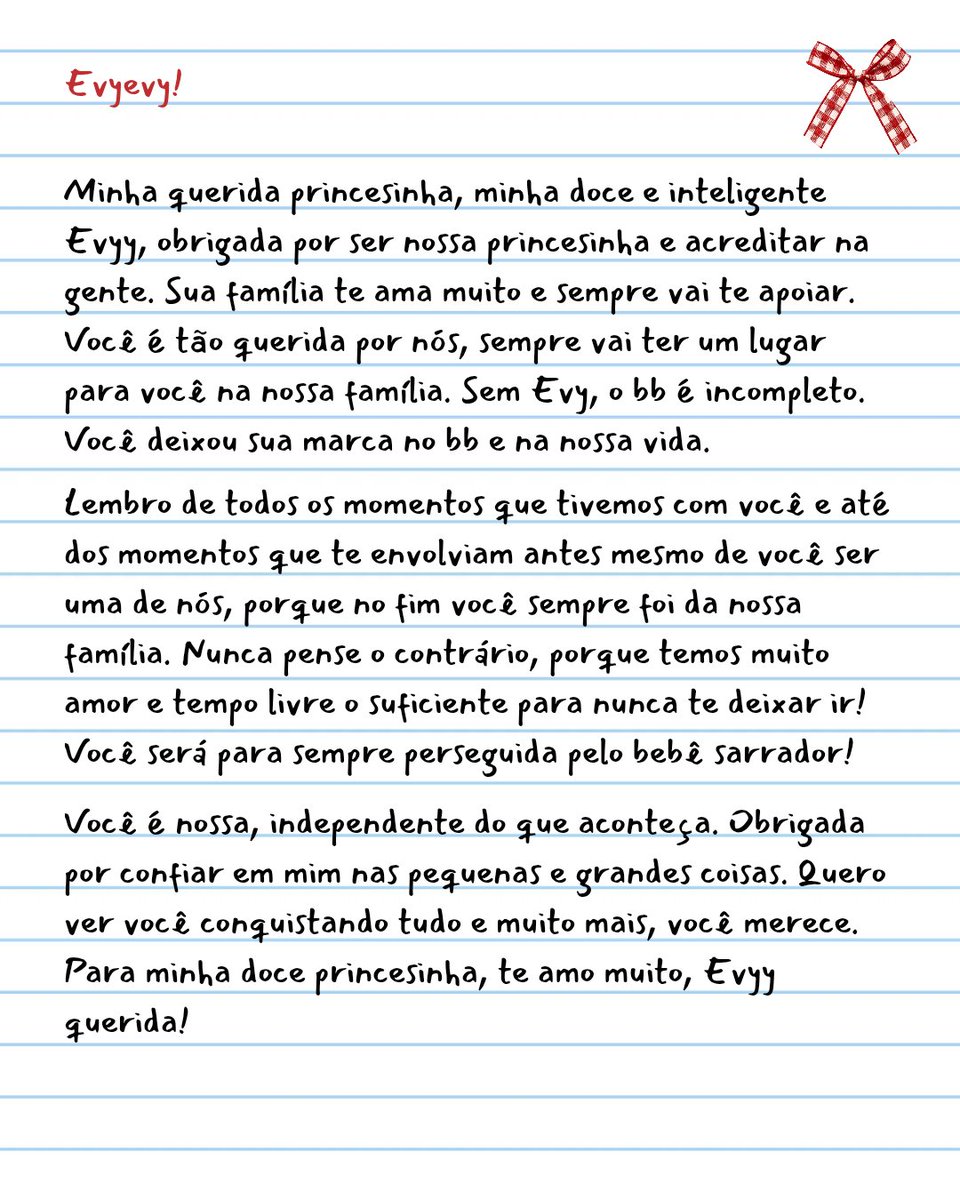 Evyevy!
Minha querida princesinha, minha doce e inteligente
Evyy, obrigada por ser nossa princesinha e acreditar na
gente. Sua família te ama muito e sempre vai te apoiar.
Você é tão querida por nós, sempre vai ter um lugar
para você na nossa família. Sem Evy, o bb é incompleto.
Você deixou sua marca no bb e na nossa vida.
Lembro de todos os momentos que tivemos com você e até
dos momentos que te envolviam antes mesmo de você ser
uma de nós, porque no fim você sempre foi da nossa
família. Nunca pense o contrário, porque temos muito
amor e tempo livre o suficiente para nunca te deixar ir!
Você será para sempre perseguida pelo bebê sarrador!
Você é nossa, independente do que aconteça. Obrigada
por confiar em mim nas pequenas e grandes coisas. Quero
ver você conquistando tudo e muito mais, você merece.
Para minha doce princesinha, te amo muito, Evyy
querida!